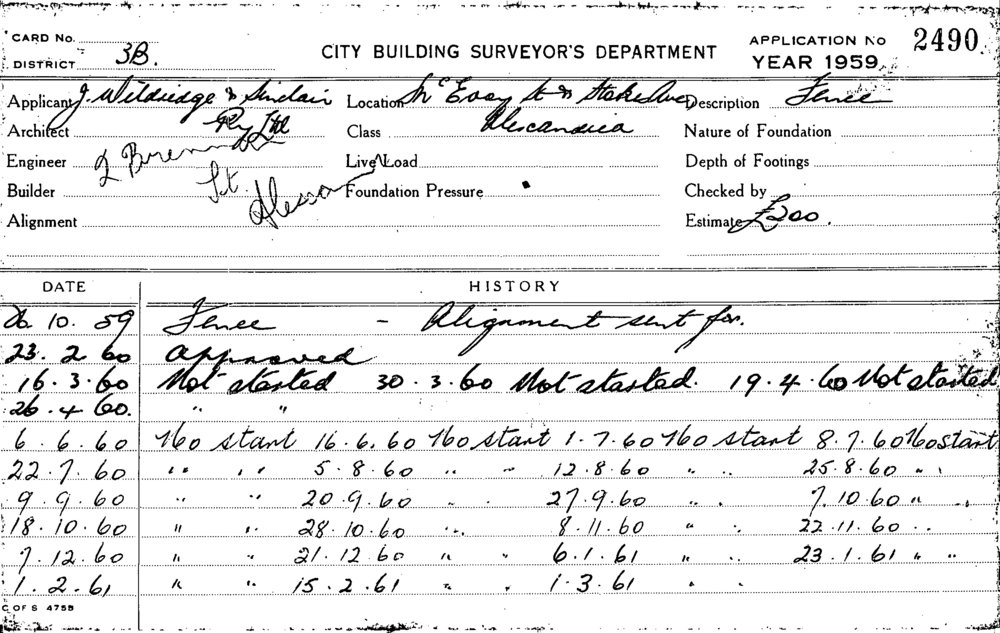 CARD No.
DISTRICT 3B.
CITY BUILDING SURVEYOR'S DEPARTMENT
APPLICATION No 2490
YEAR 1959
Applicant J. Wildridge & Sinclair Location McEvoy St & Stokes Ave Description Fence
Architect Pty Ltd Class Alexandria Nature of Foundation
Engineer Live Load Depth of Footings
Builder St. Foundation Pressure Checked by
Alignment Estimate £200.
DATE HISTORY
26. 10. 59 Fence - Alignment sent for.
23. 2 60 Approved
16. 3. 60 Not started 30. 3. 60 Not started. 19. 4. 60 Not started
26. 4. 60. " "
6. 6. 60 No start 16. 6. 60 No start 1. 7. 60 No start 8. 7. 60 No start
22. 7. 60 " " 5. 8. 60 " " 12. 8. 60 " " 25. 8. 60 " "
9. 9. 60 " " 20. 9. 60 " " 27. 9. 60 " " 7. 10. 60 " "
18. 10. 60 " " 28. 10. 60 " " 8. 11. 60 " " 22. 11. 60 " "
7. 12. 60 " " 21. 12. 60 " " 6. 1. 61 " " 23. 1. 61 " "
1. 2. 61 " " 15. 2. 61 " " 1. 3. 61 " "
C OF S 475B